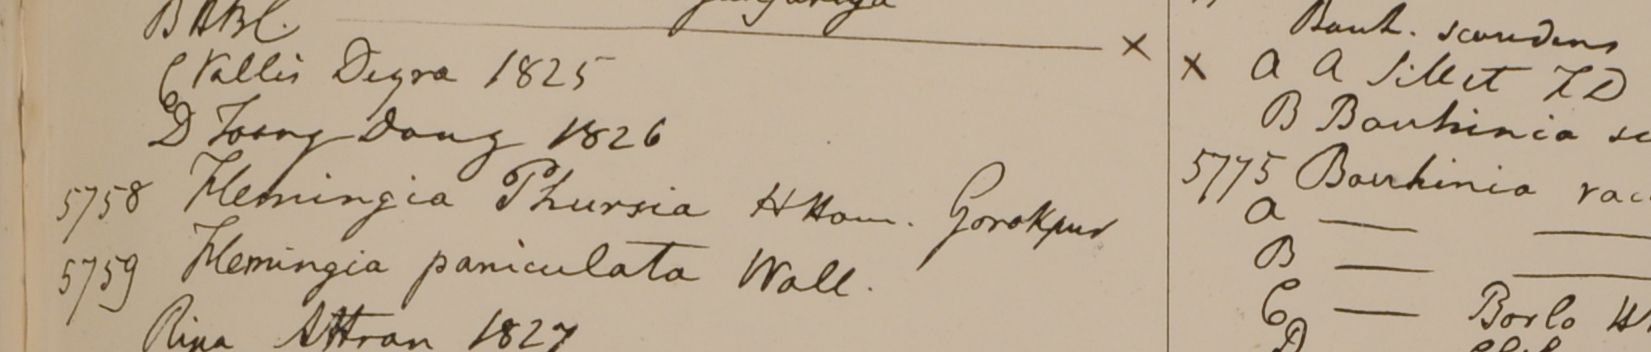 B HBC.
C Vallis Deyra 1825
D Toong Dong 1826
5758 Flemingia Phursia HHam. Gorokpur
5759 Flemingia paniculata Wall.
Ripa Attran 1827
Bauh. scandens
x a A Sillet FD
B Bauhinia
5775 Bauhinia
a
B
C Borlo
D